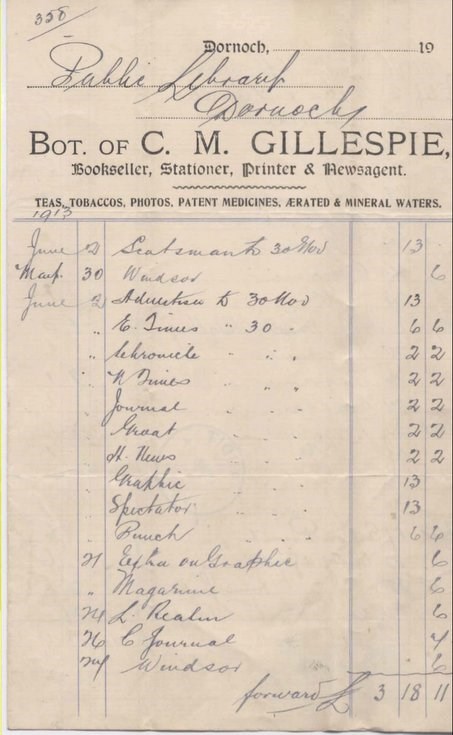 350
Dornoch, 19
Public Library
Dornoch
BOT. OF C. M. GILLESPIE,
Bookseller, Stationer, Printer & Newsagent.
TEAS, TOBACCOS, PHOTOS, PATENT MEDICINES, ÆRATED & MINERAL WATERS.
1913
June 2 Scotsman to 30 Nov 13
30 Windsor 6
June 2 to 30 Nov 13
" E. Times " 30 " 6 6
" Chronicle " " " 2 2
" N Times " " 2 2
Journal 2 2
Groat 2 2
H. News 2 2
Graphic 13
Spectator 13
Punch 6 6
21 Extra on Graphic 6
" Magazine 6
24 L. Realm 6
26 C Journal 7
24 Windsor 6
forward £ 3 18 11